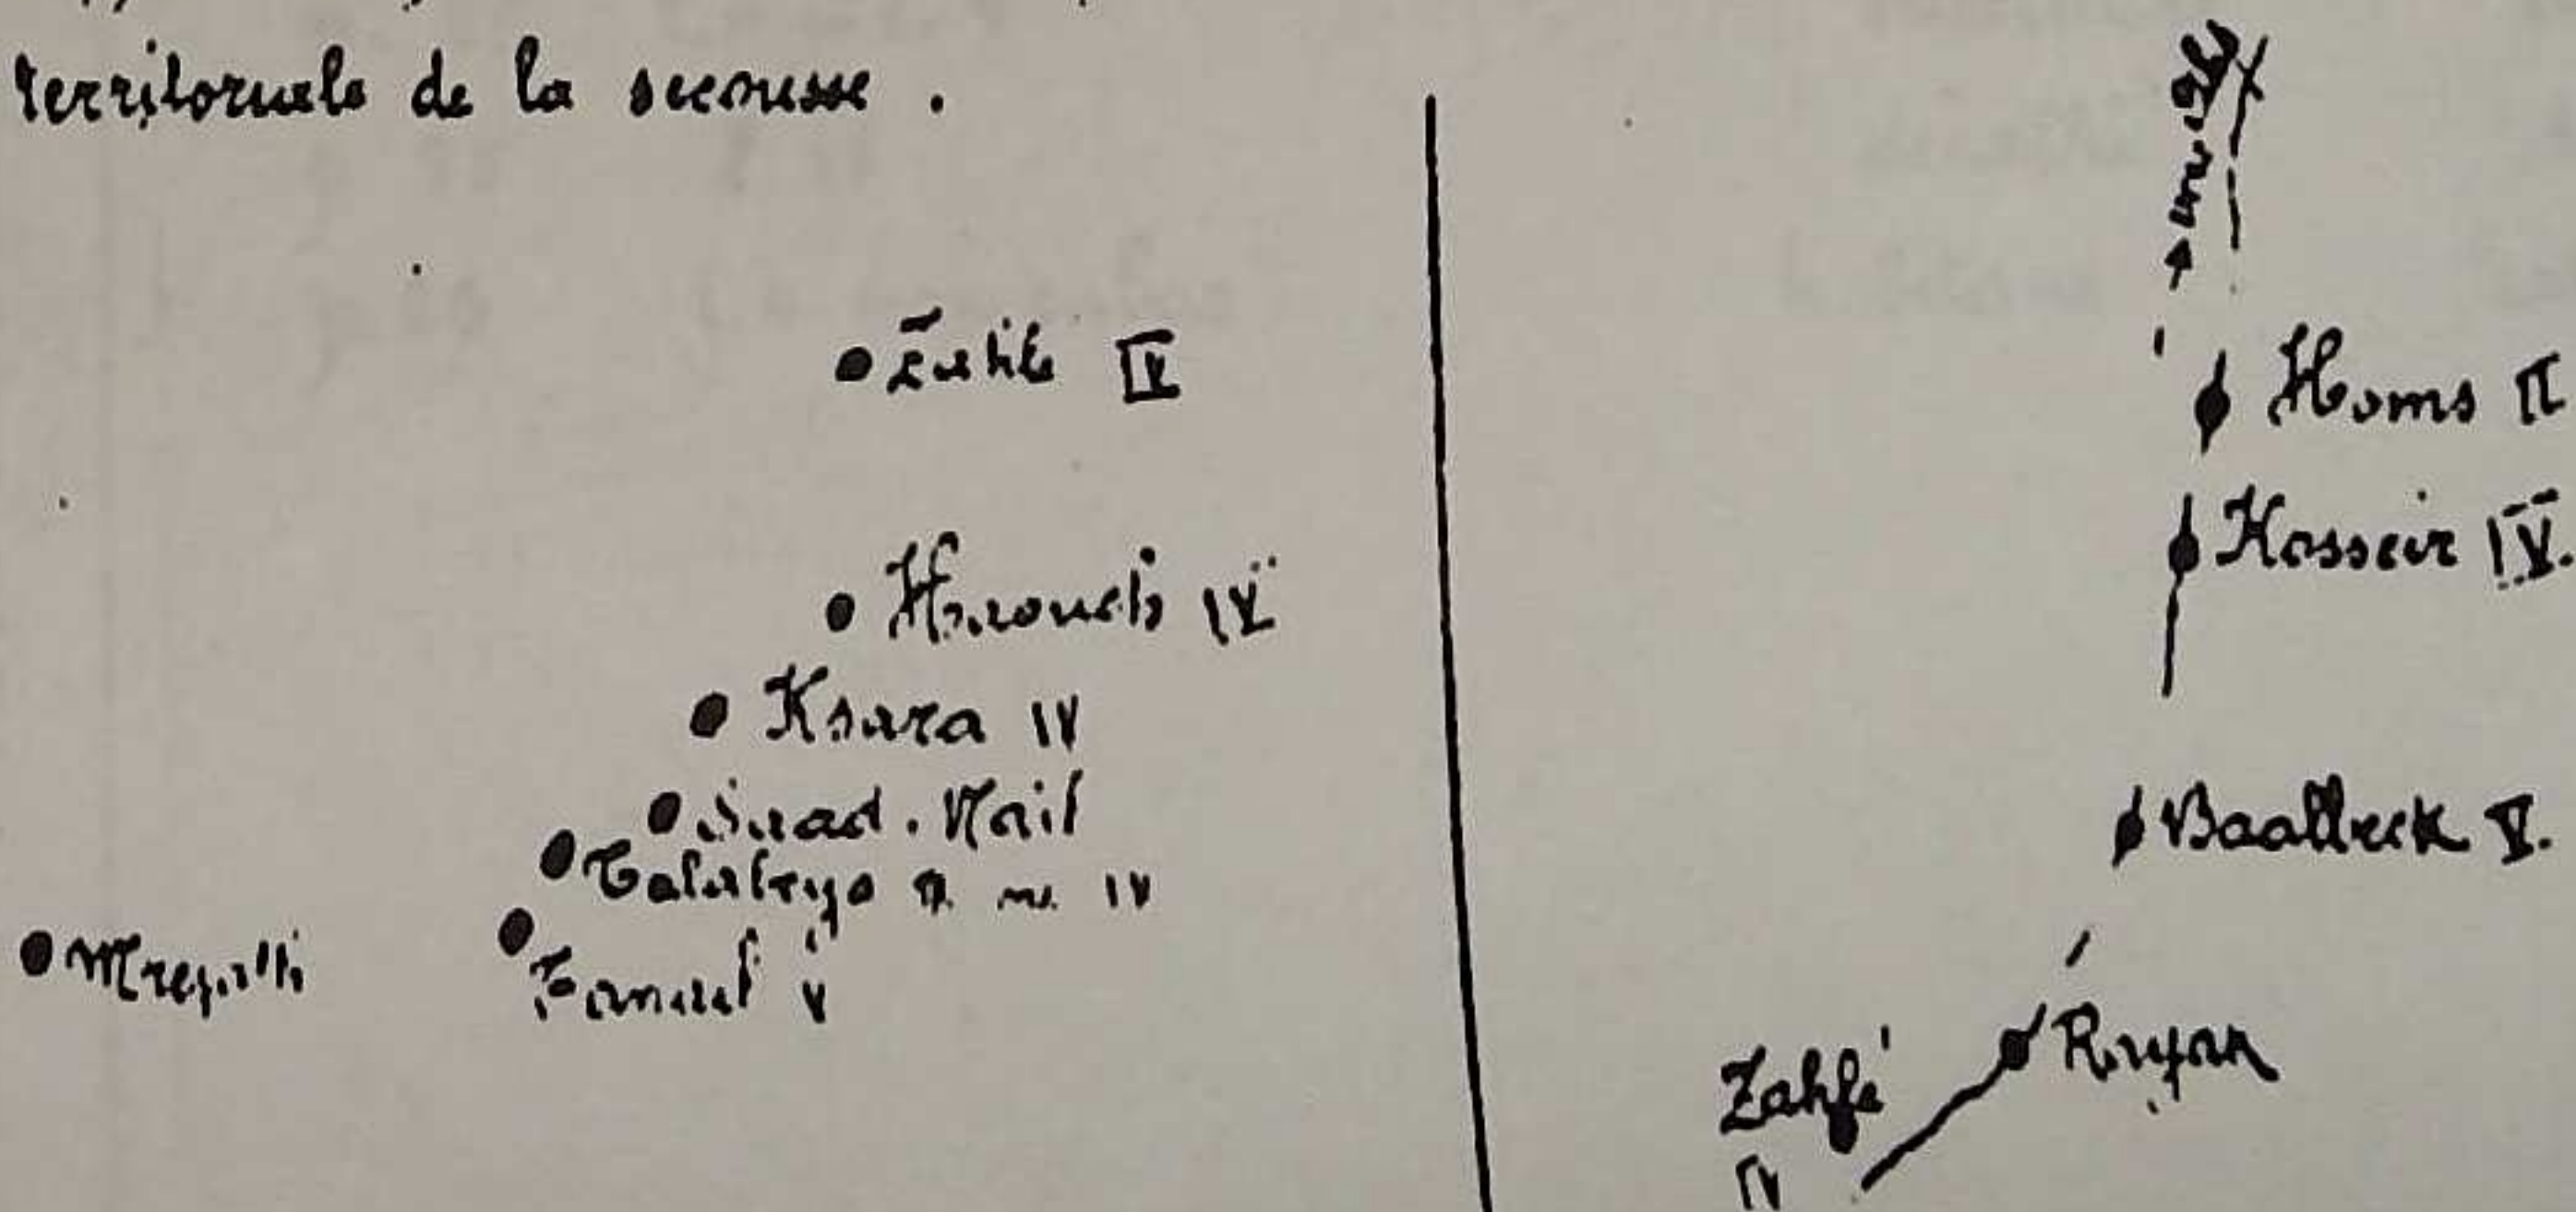 territoriale de la secousse.
Zahlé IV
Haouch IV
Ksara IV
Suad. Naïl
Talabaya IV
Mregatti
V
Homs II
Kosseir IV.
Baalbeck V.
Rayak
Zahlé
IV